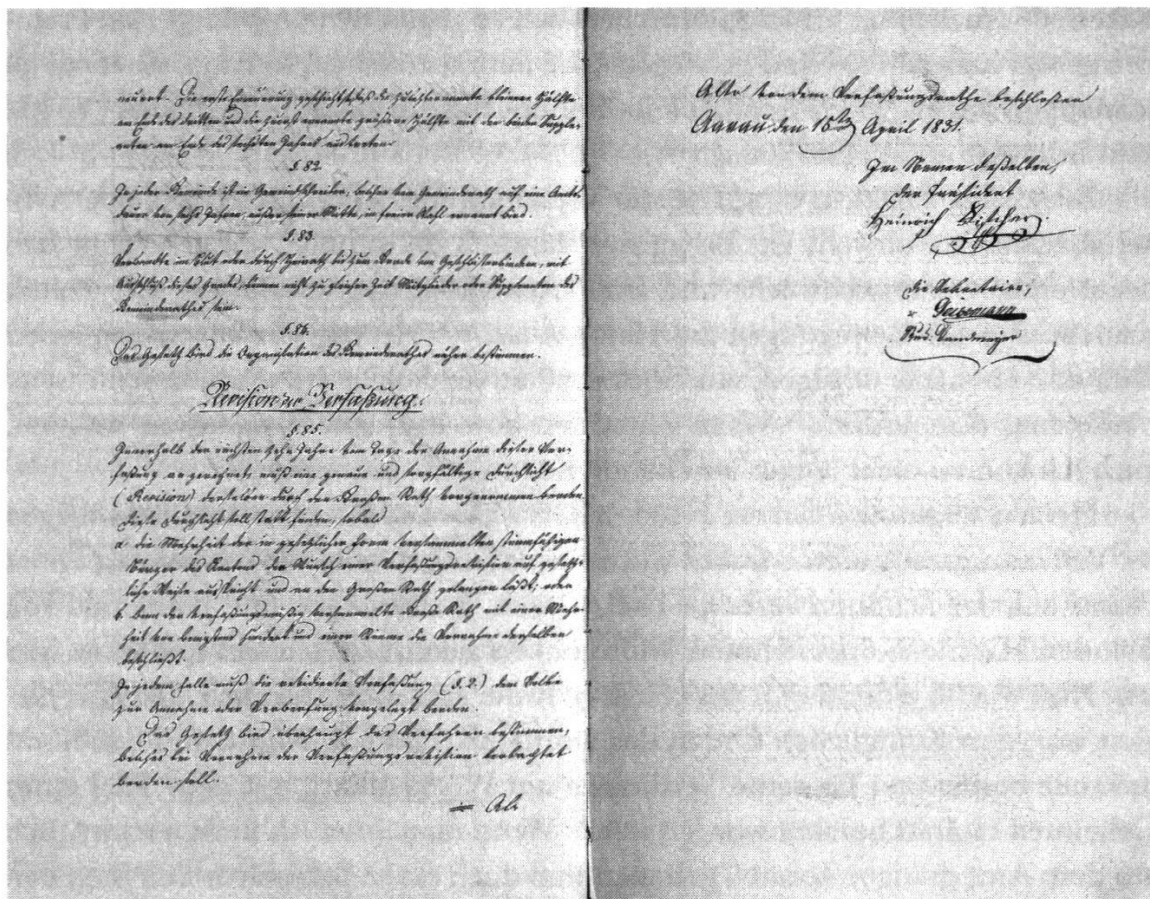 neuert. Die erste Erneuerung geschieht so, daß die zuletzt ernannte kleinere Hälfte
am Ende des dritten und die zuerst ernannte größere Hälfte mit den beiden Supple-
anten am Ende des sechsten Jahres austreten.
§. 82.
In jeder Gemeinde ist ein Gemeindschreiber, welcher vom Gemeindrath auf eine Amts-
dauer von sechs Jahren, außer seiner Mitte, in freier Wahl ernannt wird.
§. 83.
Verwandte im Blut oder durch Heirath bis zum Grade von Geschwisterkindern, mit
Ausschluß dieses Grads, können nicht zu gleicher Zeit Mitglieder oder Suppleanten des
Gemeindrathes sein.
§. 84.
Das Gesetz wird die Organisation des Gemeindrathes näher bestimmen.
Revision der Verfaßung.
§. 85.
Innerhalb der nächsten zehn Jahre vom Tage der Annahme dieser Ver-
faßung an gerechnet muß eine genaue und sorgfältige Durchsicht
(Revision) derselben durch den Großen Rath vorgenommen werden.
Diese Durchsicht soll statt finden, sobald
a. die Mehrheit der in gesetzlicher Form versammelten stimmfähigen
Bürger des Kantons den Wunsch einer Verfaßungsrevision auf gesetz-
liche Weise ausspricht und an den Großen Rath gelangen läßt; oder
b. wenn der verfaßungmäßig versammelte Große Rath mit einer Mehr-
heit von hundert und einer Stimme die Vornahme derselben
beschließt.
In jedem Falle muß die revidierte Verfaßung (§. 2.) dem Volke
zur Annahme oder Verwerfung vorgelegt werden.
Das Gesetz wird überhaupt das Verfahren bestimmen,
welches bei Vornahme der Verfaßungsrevision beobachtet
werden soll.
Als
Also von dem Verfaßungsrathe beschloßen
Aarau den 15ten April 1831.
Im Namen deßelben,
der Präsident
Heinrich Fischer.
die Sekretairs,